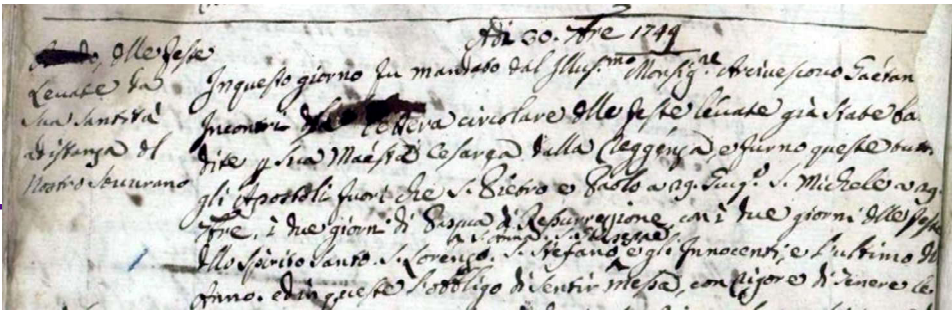 Adi 30. 7bre 1749
delle feste
Levate da
Sua Santità
ad istanza del
Nostro Sovrano
In questo giorno fu mandato dal Illus.mo Monsig.re Arcivescovo Gaetan
Incontri lettera circolare delle feste levate già state ba
dite p Sua Maestà Cesarea dalla Reggenza, e furno queste tutti
gli Apostoli fuori che S. Pietro e Paolo a 29. Giug.o S. Michele a 29
7bre, i due giorni di Pasqua di Resurrezione, con i due giorni delle feste
dello Spirito Santo. S. Lorenzo. S. Stefano, e gli Innocenti, e l'ultimo del
Anno. ed in queste l'obbligo di sentir messa, con rigore di tenere le